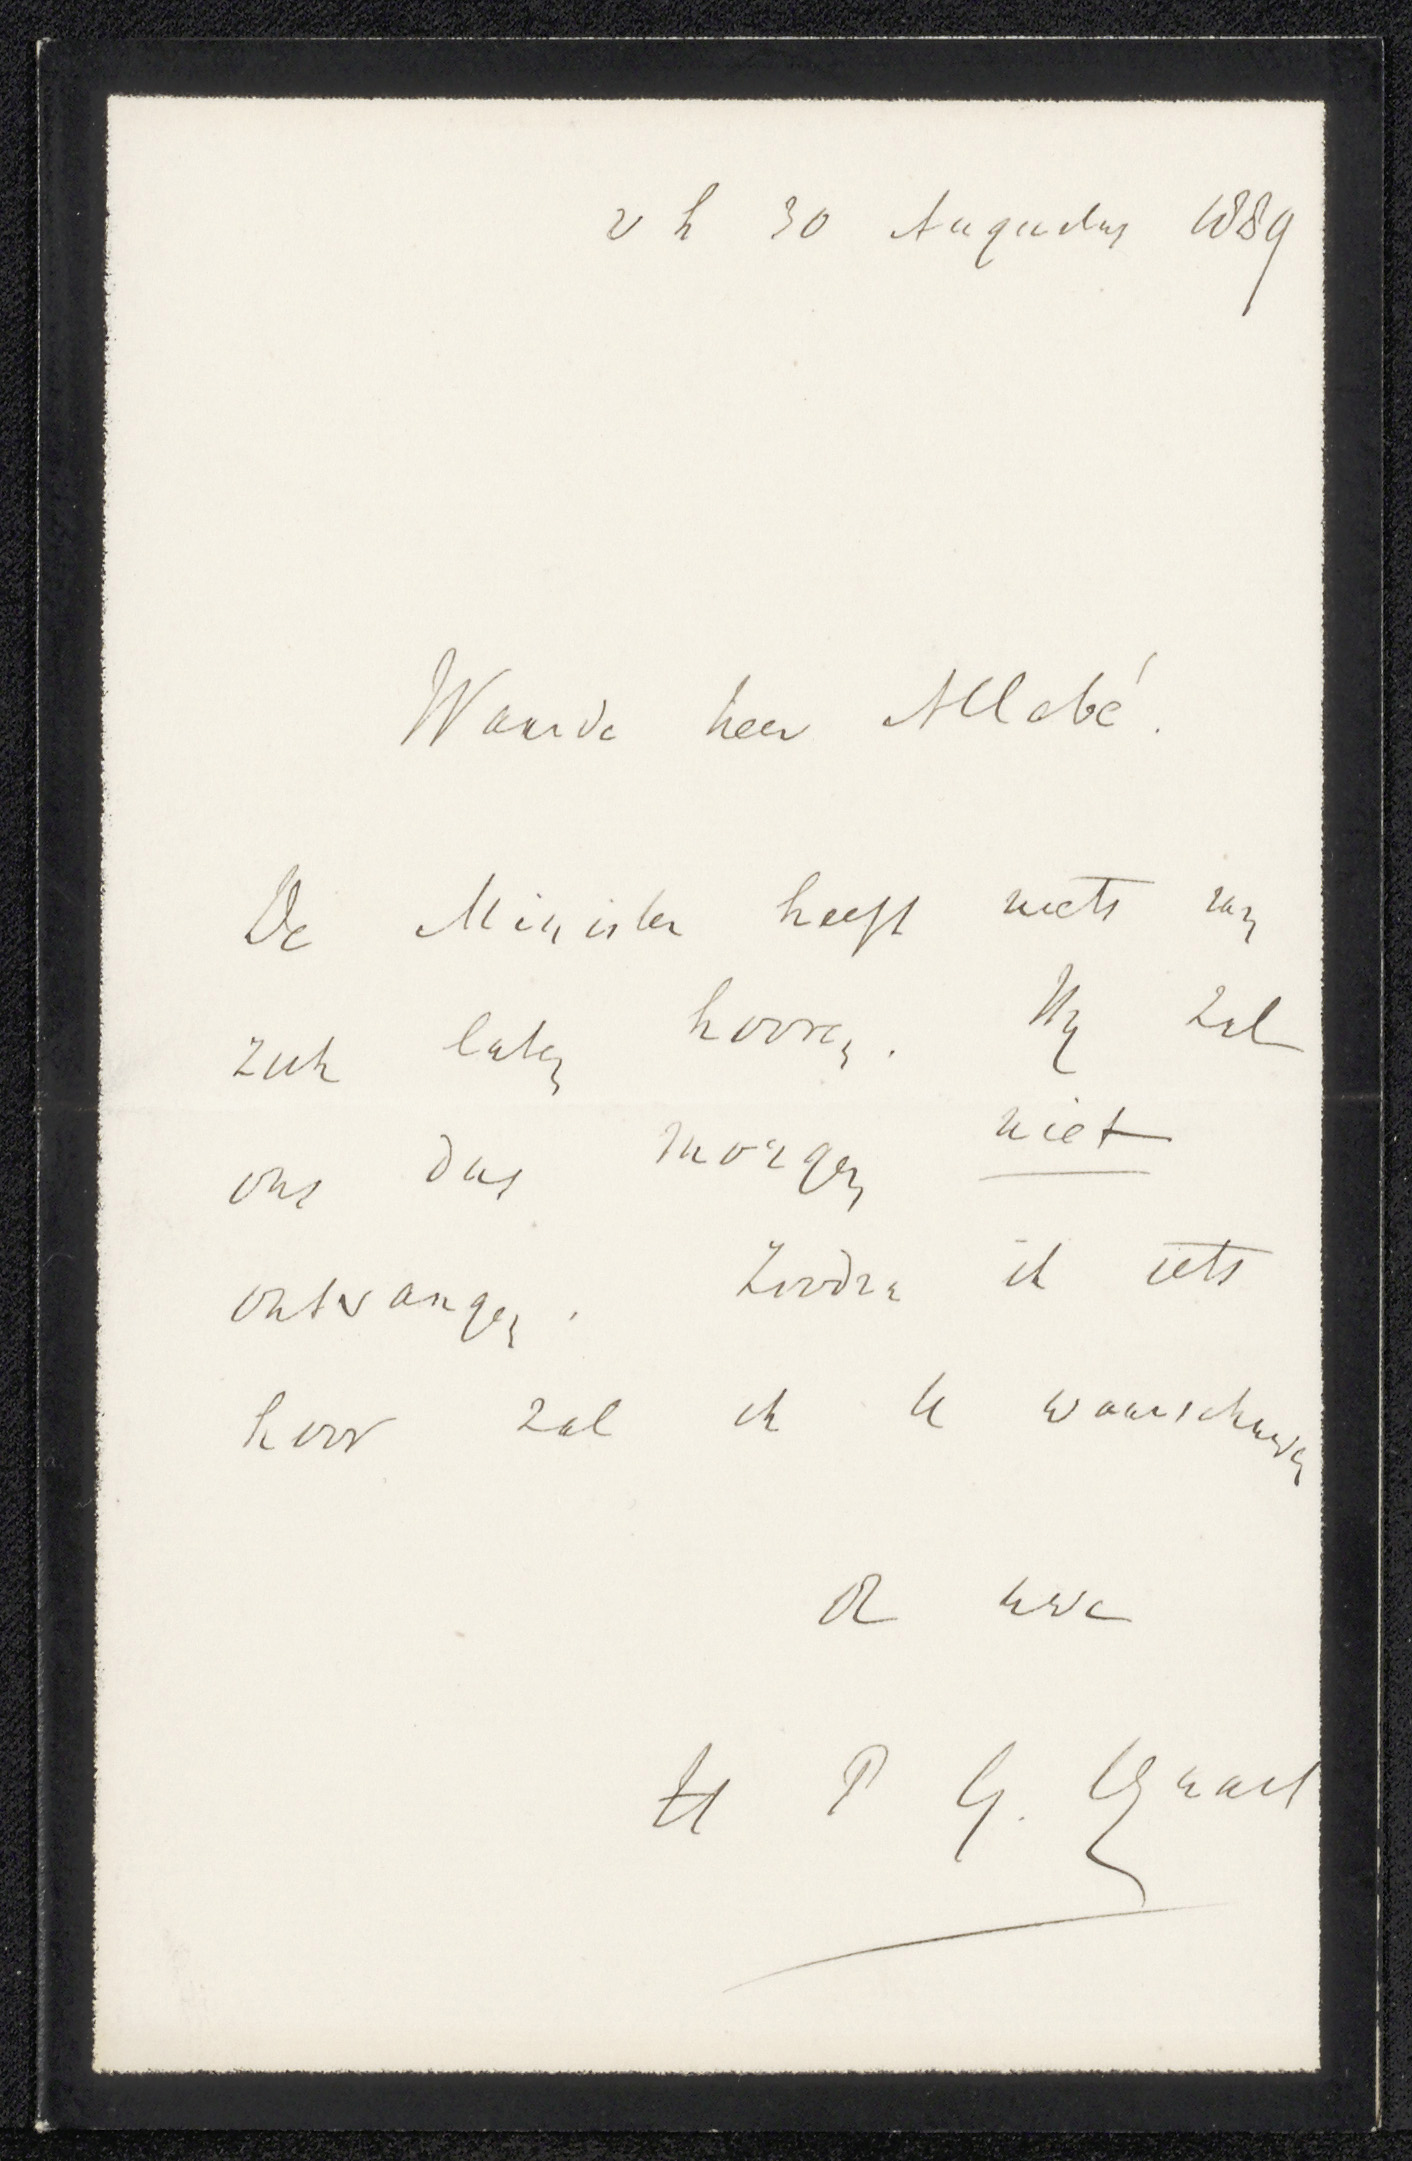 v h 30 Augustus 1889
Waarde heer Allebé.
De Minister heeft niets van
zich laten hooren. Hij zal
ons dus morgen niet
ontvangen. Zoodra ik iets
hoor zal ik U waarschuwen
uwe
H P G. Quack